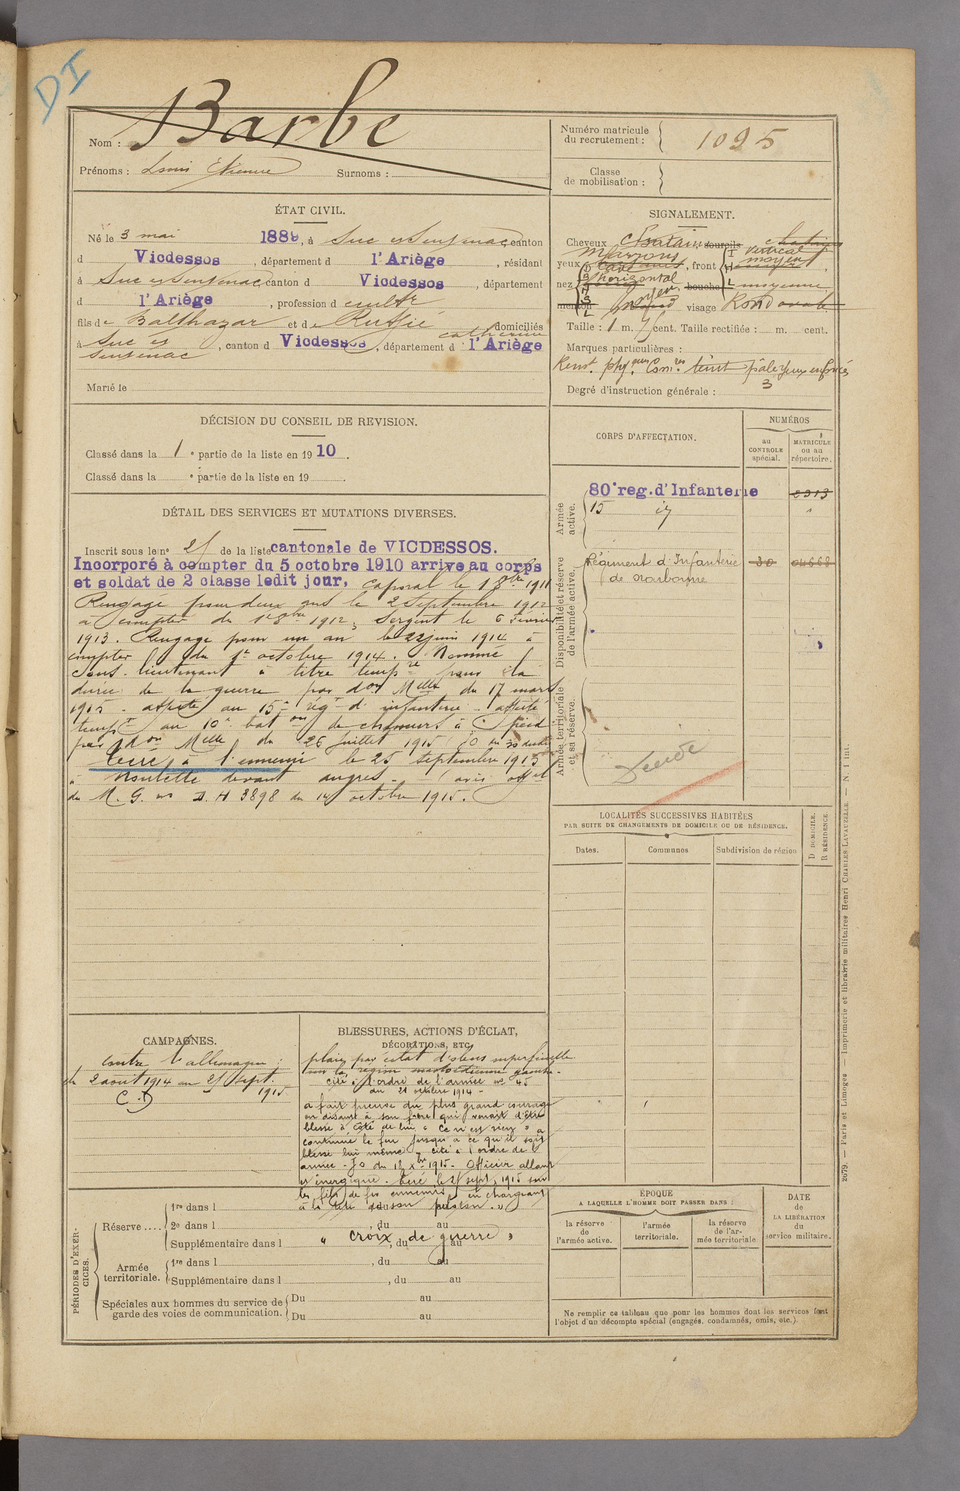 DI
Nom : Barbe
Prénoms : Louis Etienne Surnoms :
Numéro matricule du recrutement : 1095
Classe de mobilisation :
ÉTAT CIVIL.
Né le 3 mai 1889, à Suc et Sentenac canton
d Vicdessos, département d l'Ariège, résidant
à Suc et Sentenac canton d Vicdessos, département
d l'Ariège, profession d cultr
fils de Balthazar et de Ruffié Catherine domiciliés
à Suc et Sentenac, canton d Vicdessos, département d l'Ariège
Marié le
SIGNALEMENT.
Cheveux Chatain sourcils chatains
yeux Marrons, front vertical moyen
nez horizontal bouche moyenne
menton visage Rond ovale
Taille : 1 m. cent. Taille rectifiée : m. cent.
Marques particulières :
Rens. phy. Com. teint pâle yeux enfoncés
Degré d'instruction générale : 3
DÉCISION DU CONSEIL DE REVISION.
Classé dans la 1e partie de la liste en 1910.
Classé dans la e partie de la liste en 19
CORPS D'AFFECTATION.
NUMÉROS
au CONTROLE spécial.
MATRICULE ou au répertoire.
Armée active.
80e reg. d'Infanterie
15 id
Disponibilité et réserve de l'armée active.
Régiment d'Infanterie de Narbonne 30
Armée territoriale et sa réserve.
DÉTAIL DES SERVICES ET MUTATIONS DIVERSES.
Inscrit sous le no 25 de la liste cantonale de VICDESSOS.
Incorporé à compter du 5 octobre 1910 arrive au corps
et soldat de 2 classe ledit jour, caporal le 1 8bre 1911
Rengagé pour deux ans le 2 Septembre 1912
à compter du 1er 8bre 1912, sergent le 6 février
1913. Rengagé pour un an le 22 juin 1914 à
compter du 1er octobre 1914. Nommé
sous-lieutenant à titre tempre pour la
durée de la guerre par don Mlle du 17 mars
1915. affecté au 15e régt d'infanterie - affecté
tempt au 10e bat on de chasseurs à pied
par don Mlle du 26 juillet 1915
tué à l'ennemi le 25 septembre 1915
à Noulette devant angres. (avis offel
du M. G. no D. H 3898 du 14 octobre 1915.
LOCALITÉS SUCCESSIVES HABITÉES
PAR SUITE DE CHANGEMENTS DE DOMICILE OU DE RÉSIDENCE.
Dates.
Communes
Subdivision de région
D DOMICILE.
R RÉSIDENCE.
CAMPAGNES.
contre l'allemagne :
du 2 août 1914 au 25 Sept.
1915
C. D
BLESSURES, ACTIONS D'ÉCLAT,
DÉCORATIONS, ETC.
plaie par éclat d'obus superficielle
sur la région mastoïdienne gauche
cité à l'ordre de l'armée no 45
du 21 octobre 1914 -
a fait preuve du plus grand courage
en disant à son frère qui venait d'être
blessé à côté de lui « Ce n'est rien » a
continué le feu jusqu'à ce qu'il soit
blessé lui même - cité à l'ordre de l'
armée - JO du 12 Xbre 1915. Officier allant
et énergique. tué le 25 sept. 1915 sur
les fils de fer ennemis en chargeant
à la tête de son peloton. »
« croix de guerre »
PÉRIODES D'EXERCICES.
Réserve ....
1re dans l
2e dans l , du au
Supplémentaire dans l , du au
Armée territoriale.
1re dans l , du au
Supplémentaire dans l , du au
Spéciales aux hommes du service de garde des voies de communication.
Du au
Du au
ÉPOQUE
A LAQUELLE L'HOMME DOIT PASSER DANS :
la réserve de l'armée active.
l'armée territoriale.
la réserve de l'armée territoriale
DATE
de
LA LIBÉRATION
du
service militaire.
Ne remplir ce tableau que pour les hommes dont les services font
l'objet d'un décompte spécial (engagés, condamnés, omis, etc.).
2079. — Paris et Limoges — Imprimerie et librairie militaires Henri CHARLES-LAVAUZELLE. — N. 1 int.